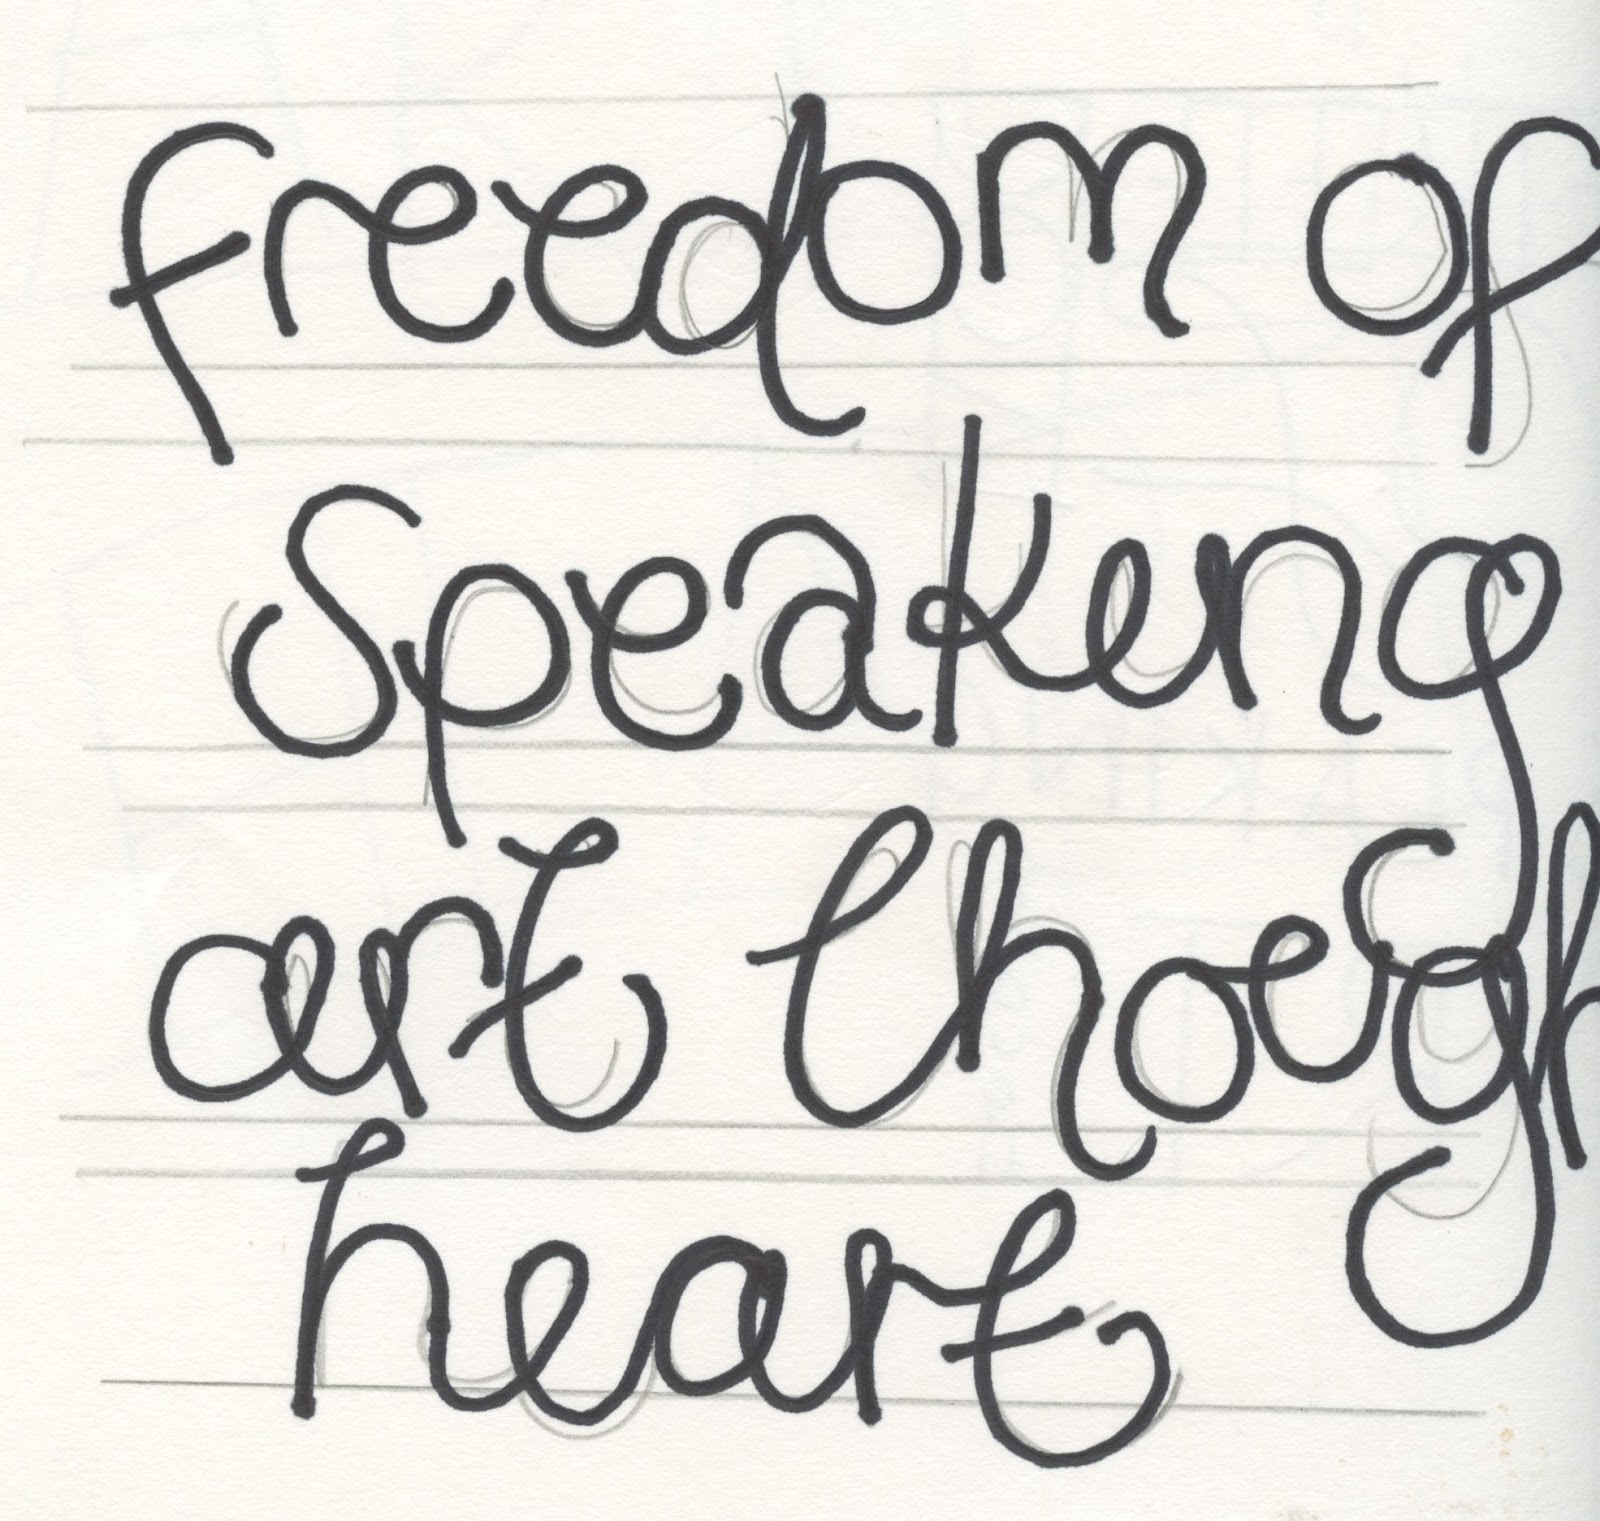 freedom of
speaking
art though
heart